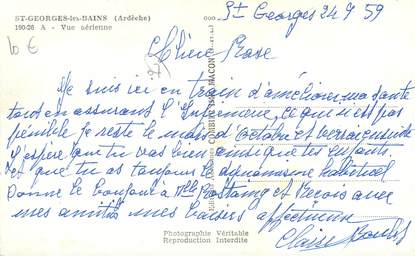 ST-GEORGES-les-BAINS (Ardèche)
190-26 A - Vue aérienne
10 €
St Georges 24 9 59
Chère Rose
Je suis ici en train d'améliorer ma santé
tout en assurant l'Infirmerie, ce qui n'est pas
pénible je reste le mois d'Octobre et verrai ensuite
J'espère que tu vas bien ainsi que tes enfants.
et que tu as toujours le dynamisme habituel
Donne le bonjour à Mlle Rostaing et Reçois avec
mes amitiés mes baisers affectueux
Photographie Véritable
Reproduction Interdite
Claire